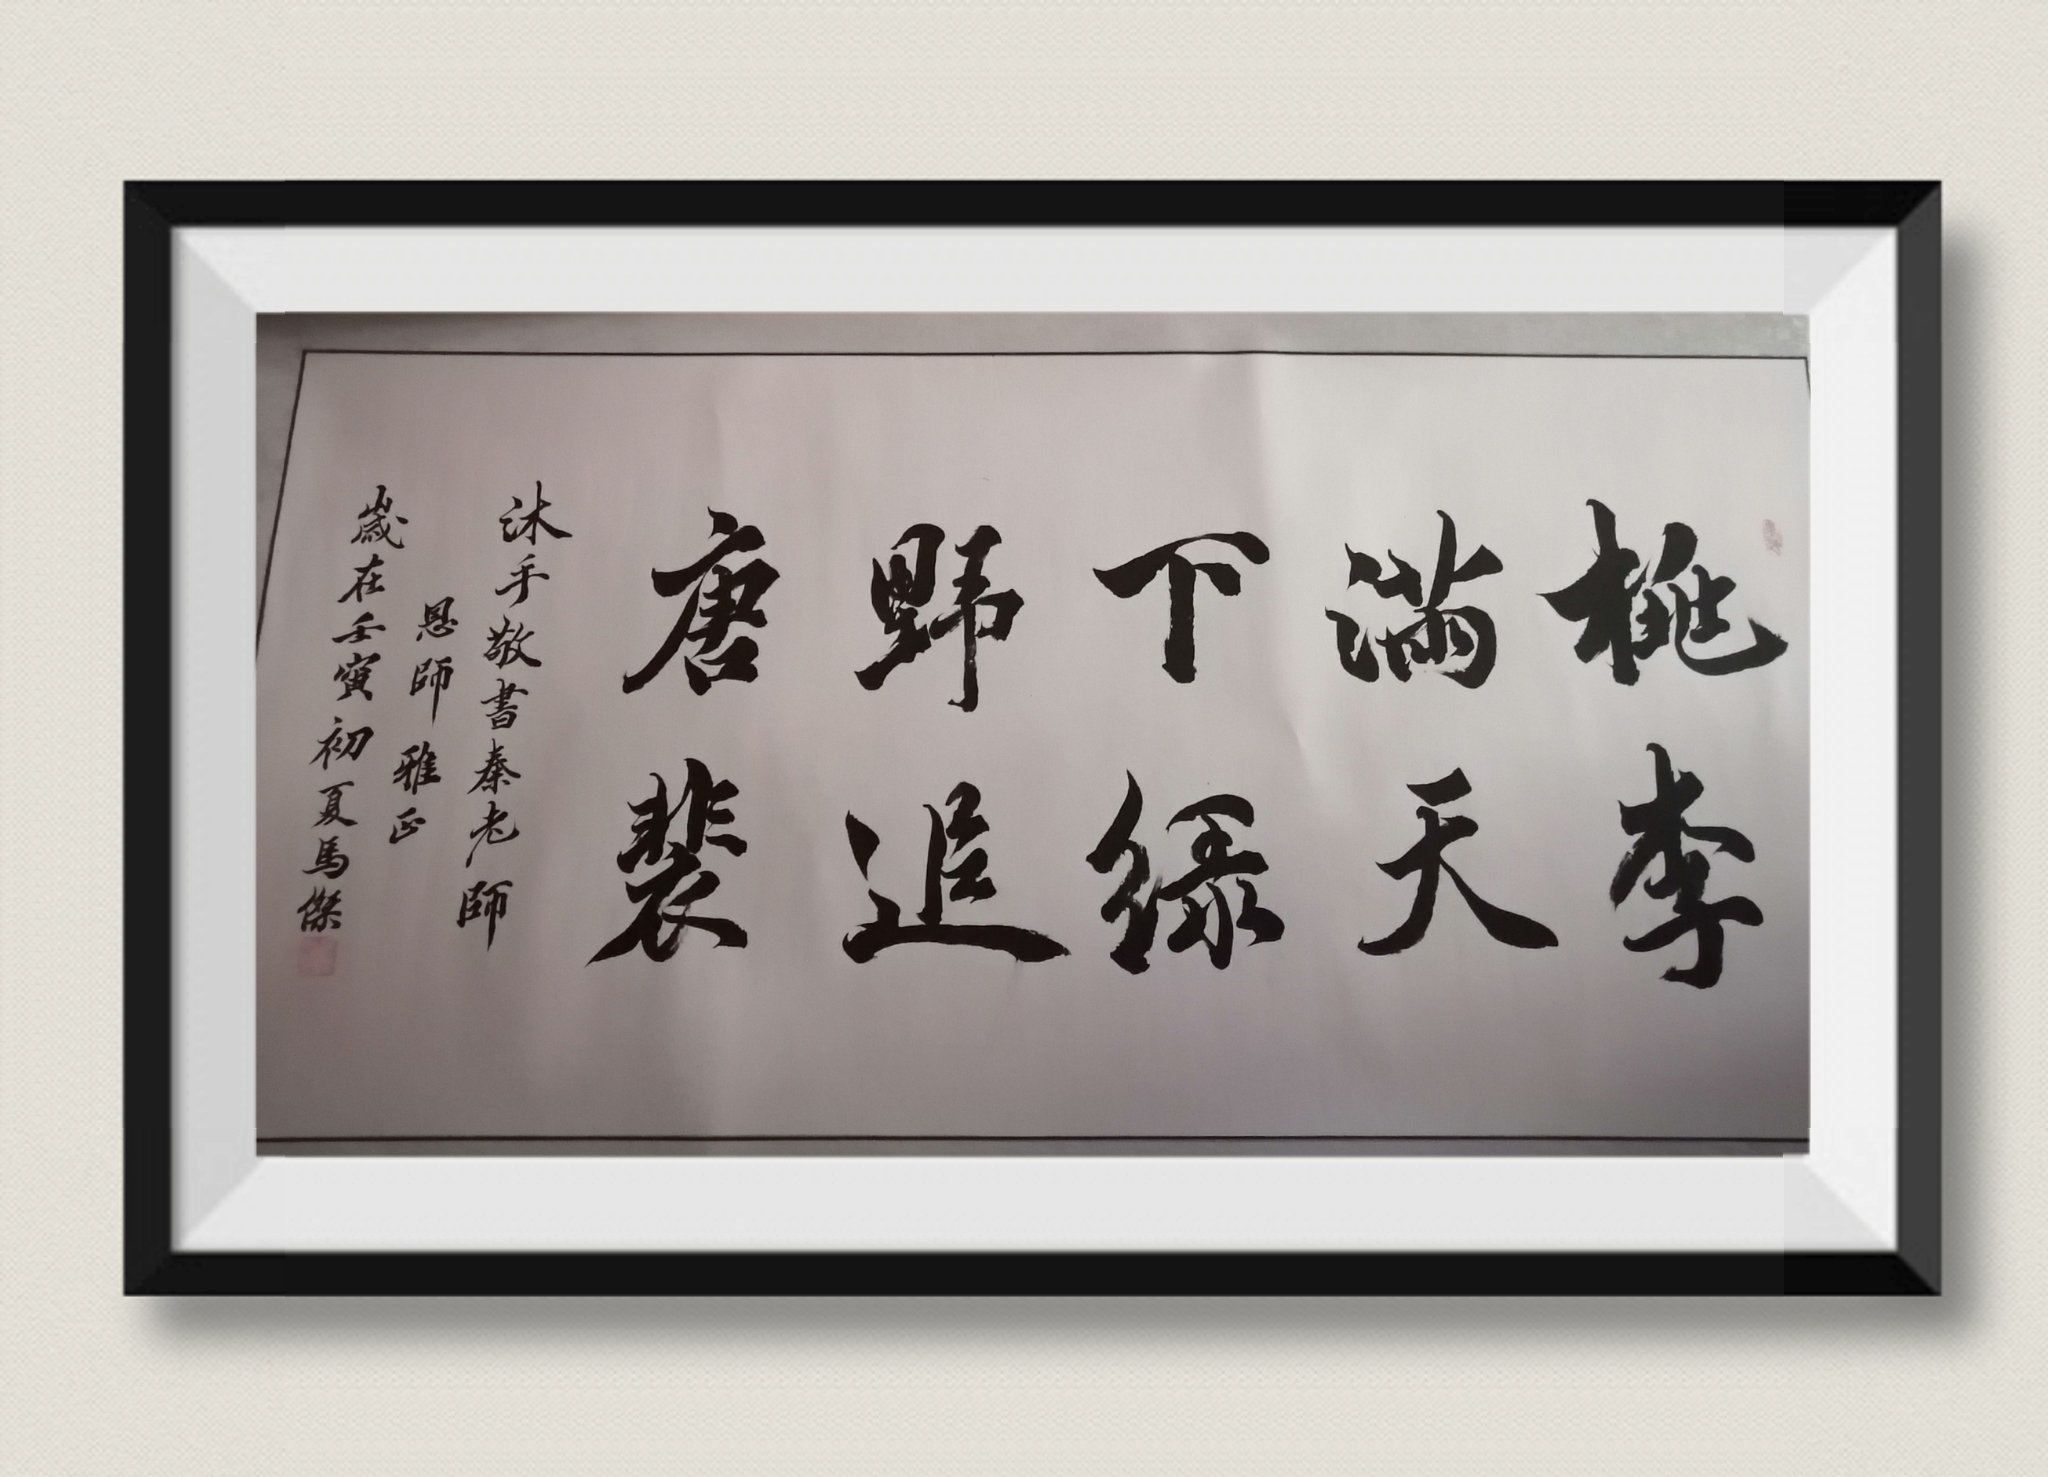 桃李
满天
下绿
野追
唐裴
沐手敬书秦老師
恩師 雅正
歲在壬寅初夏馬傑